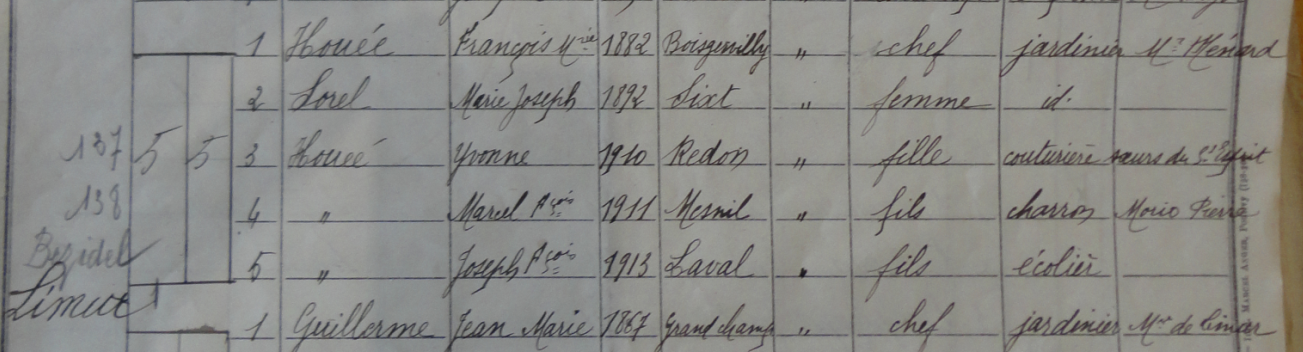 1 Houée François Mie 1882 Boisgervilly " chef jardinier Mr Ménard
2 Sorel Marie Joseph 1892 Sixt " femme id.
137 5 5 3 Houeé Yvonne 1910 Redon " fille couturière sœurs du St Esprit
138 4 " Marcel Fçois 1911 Mesnil " fils charron Morio Pierre
5 " Joseph Fçois 1913 Laval " fils écolier
Limur
1 Guillerme Jean Marie 1867 Grandchamp " chef jardinier Mr de Limur